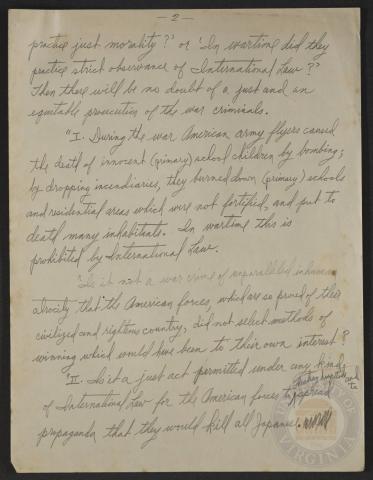 — 2 —
practice just morality?' or 'In wartime did they
practice strict observance of International Law?'
Then there will be no doubt of a just and an
equitable prosecution of the war criminals.
"I. During the war American army flyers caused
the death of innocent (primary) school children by bombing;
by dropping incendiaries, they burned down (primary) schools
and residential areas which were not fortified, and put to
death many inhabitants. In wartime this is
prohibited by International Law.
'Is it not a war crime of unparalleled inhuman
atrocity that the American forces, which are so proud of their
civilized and righteous country, did not select methods of
winning which would has been to their own interest?
"II. Is it a just act permitted under any kind
of International Law for the American forces to spread
propaganda that they would kill all Japanese
UNIVERSITY OF
VIRGINIA